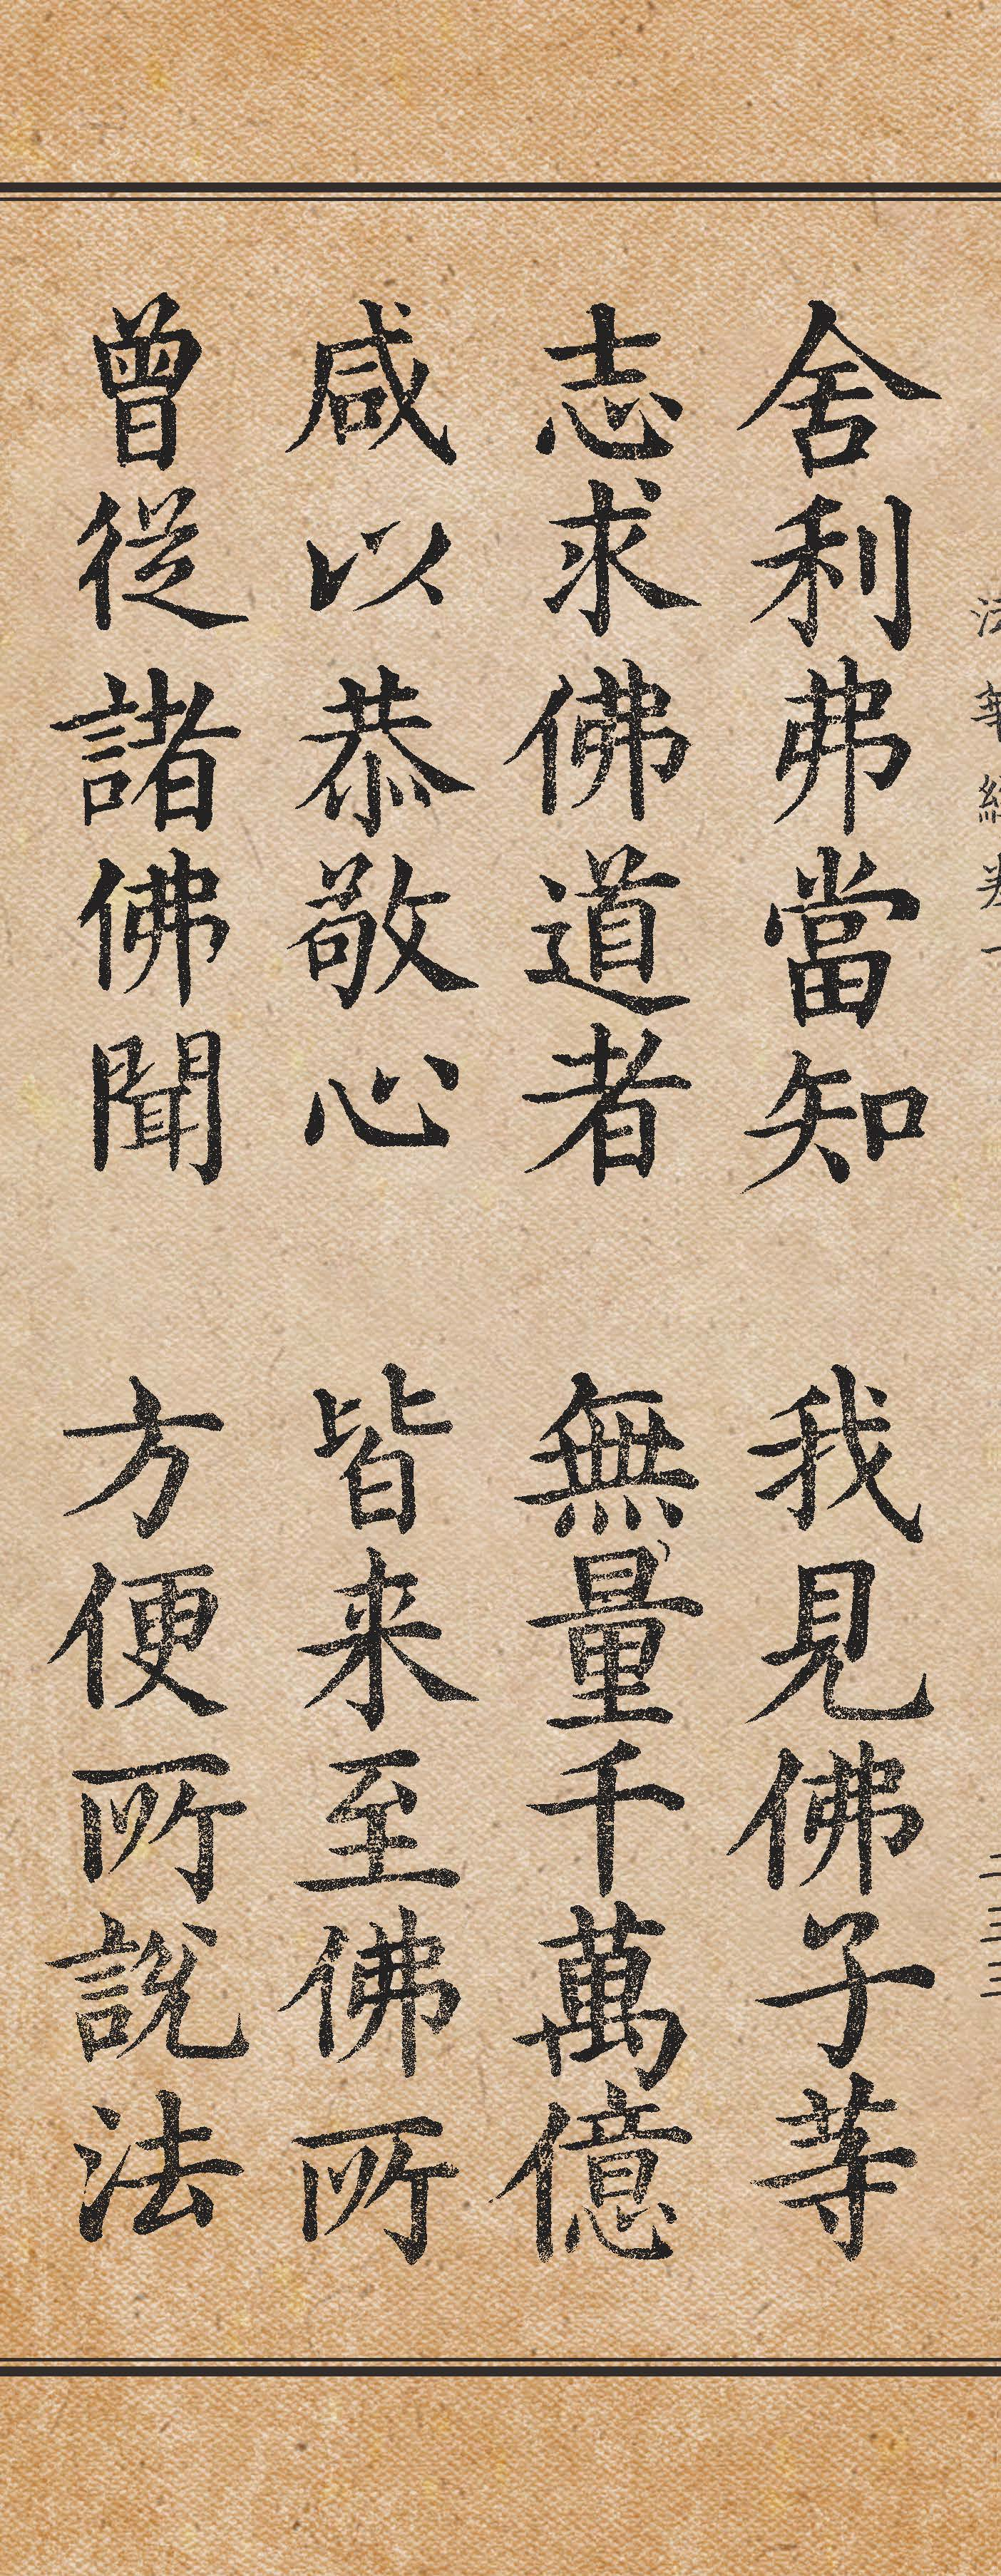 舍利弗當知 我見佛子等
志求佛道者 無量千萬億
咸以恭敬心 皆来至佛所
曾從諸佛聞 方便所說法